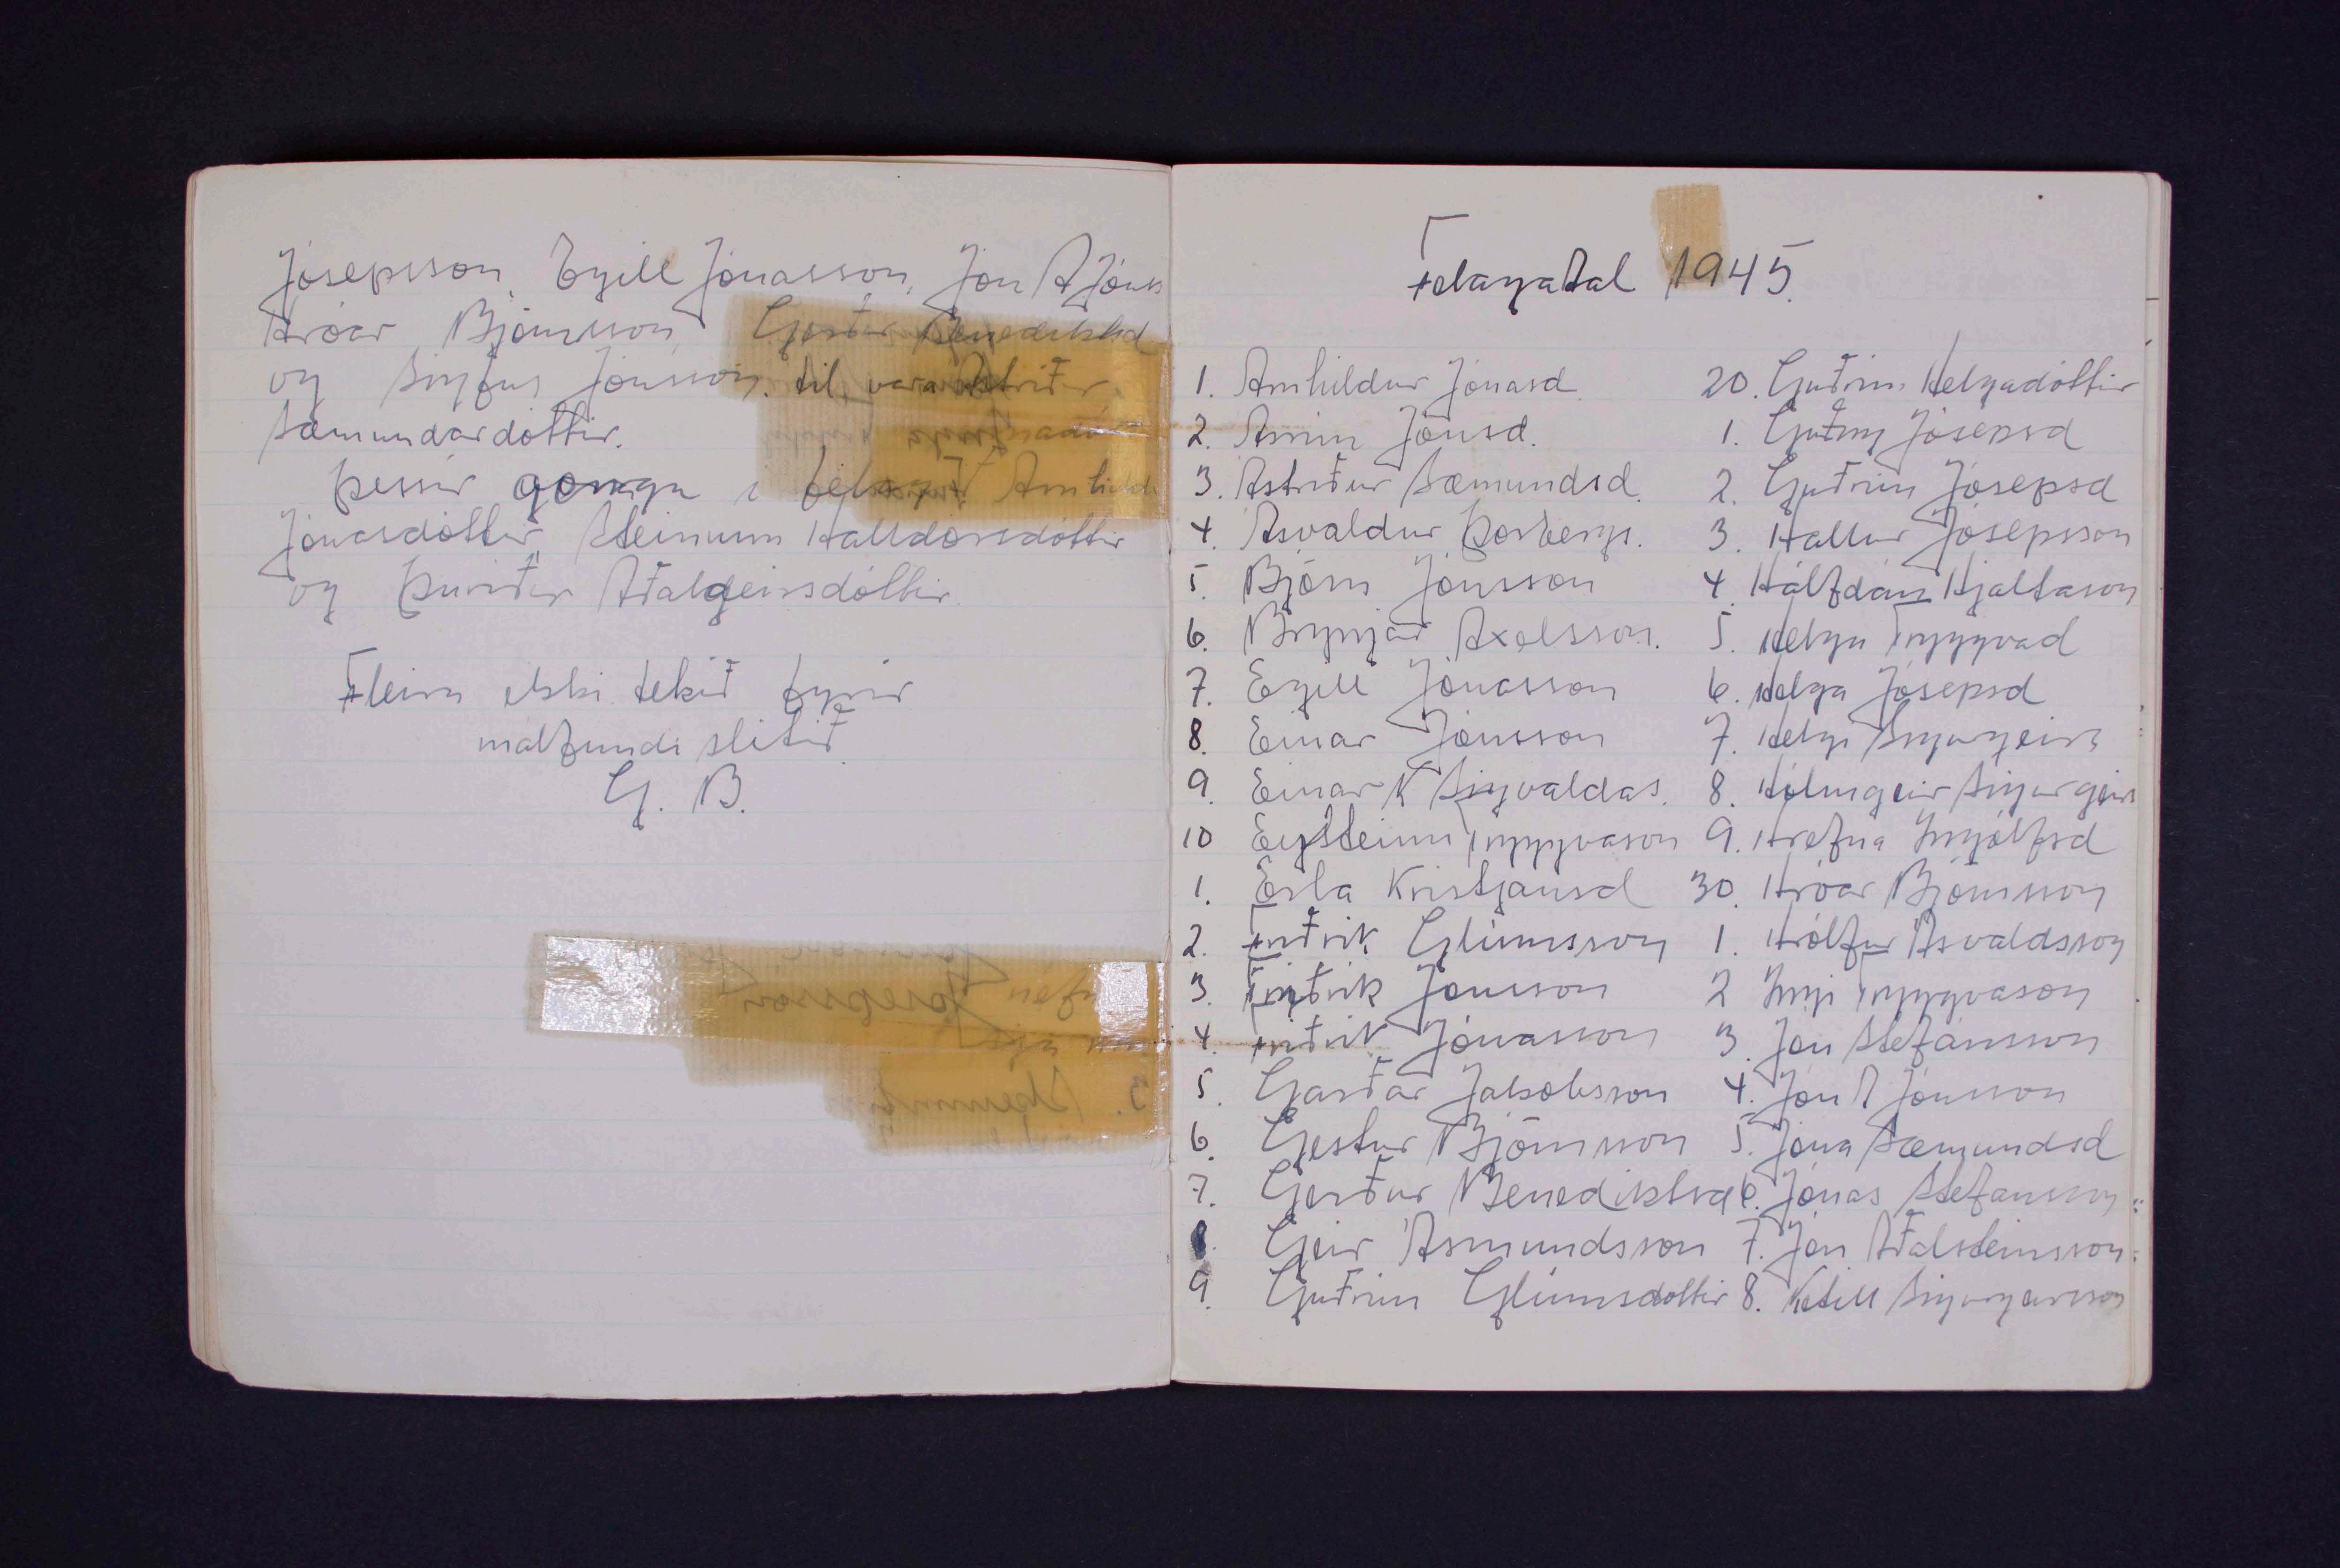 Jósepsson, Egill Jónasson, Jón A Jónss
Hróar Björnsson, Gerður Benediktsd
og Sigfús Jónsson. til vara Ástríður
Sæmundardóttir.
Þessir ganga í félagið Arnhild
Jónasdóttir, Steinunn Halldórsdóttir
og Þuríður Aðalgeirsdóttir.
Fleira ekki tekið fyrir
málfundi slitið
G. B.
Félagatal 1945.
1. Arnhildur Jónasd.
2. Árnín Jónsd.
3. Ástríður Sæmundsd.
4. Ásvaldur Þorbergs.
5. Björn Jónsson
6. Brynjar Axelsson.
7. Egill Jónasson
8. Einar Jónsson
9. Einar K Sigvaldas.
10 Eysteinn Tryggvason
1. Erla Kristjánsd
2. Friðrik Glúmsson
3. Friðrik Jónsson
4. Friðrik Jónasson
5. Garðar Jakobsson
6. Gestur Björnsson
7. Gerður Benediktsd
8. Geir Ásmundsson
9. Guðrún Glúmsdóttir
20. Guðrún Helgadóttir
1. Guðný Jósepsd
2. Guðrún Jósepsd
3. Hallur Jósepsson
4. Hálfdán Hjaltason
5. Helga Tryggvad
6. Helga Jósepsd
7. Helgi Sigurgeirs
8. Hólmgeir Sigurgeirs
9. Hrefna Ingjólfsd
30. Hróar Björnsson
1. Hrólfur Ásvaldsson
2 Ingi Tryggvason
3. Jón Stefánsson
4. Jón A Jónsson
5. Jóna Sæmundsd
6. Jónas Stefánsson
7. Jón Aðalsteinsson
8. Ketill Sigurgeirsson